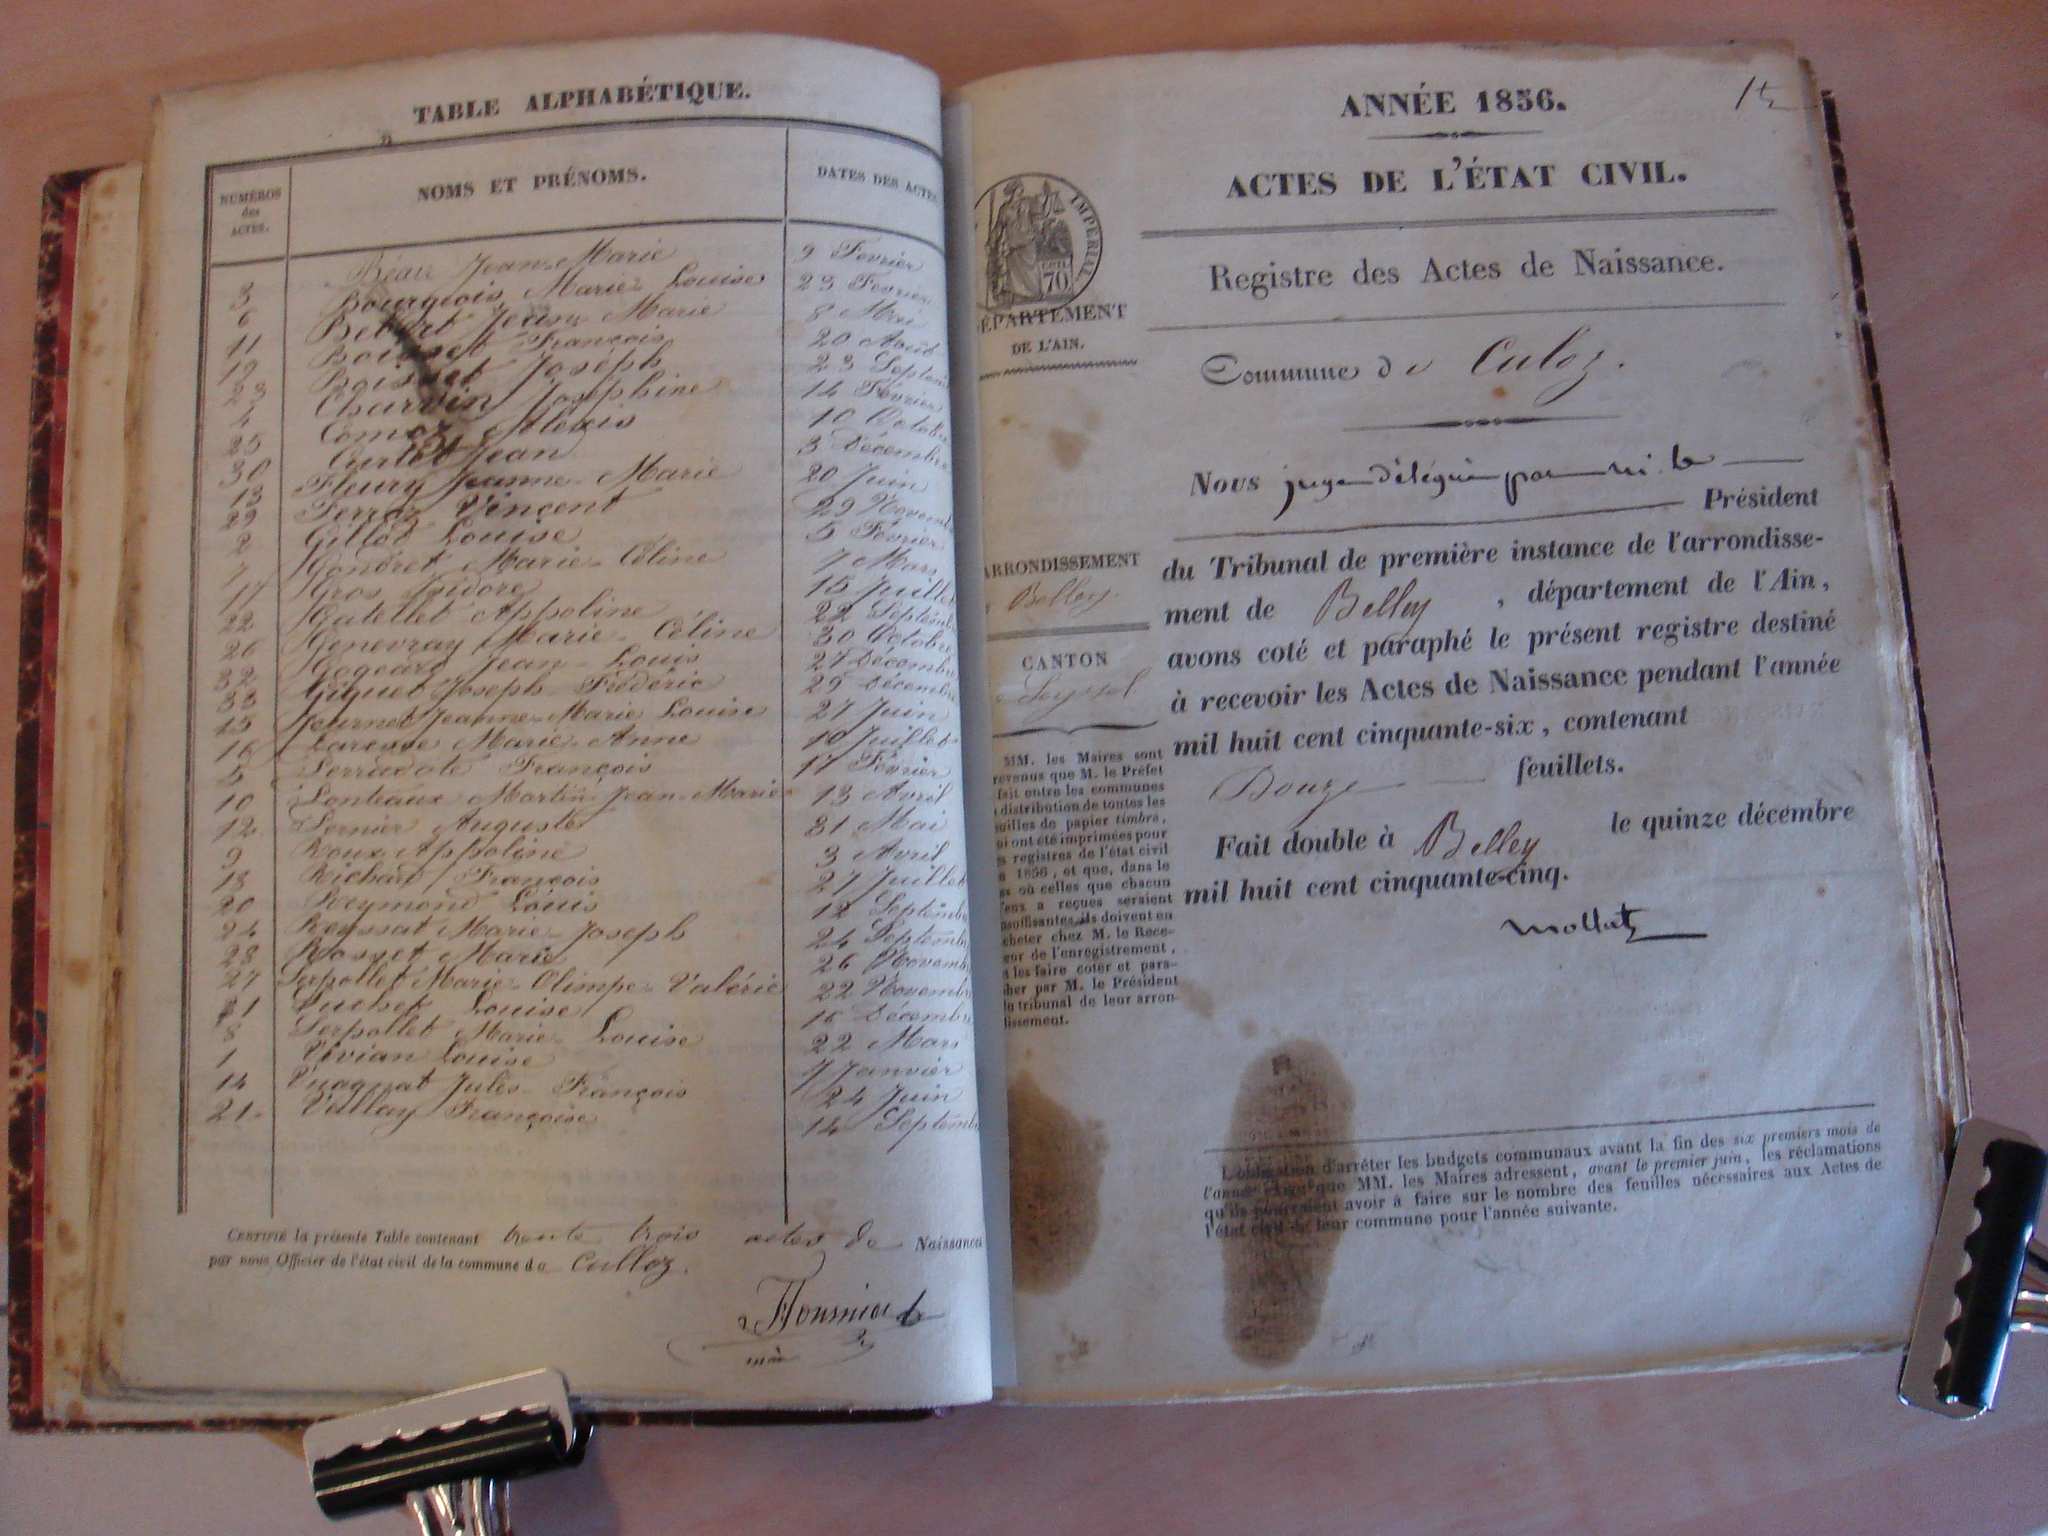 TABLE ALPHABÉTIQUE.
NUMÉROS des ACTES. NOMS ET PRÉNOMS. DATES DES ACTES
3 Béau Jean-Marie 9 Fevrier
6 Bourgeois Marie Louise 23 Fevrier
11 Marie 8 Mai
19 Boisset François 20 Août
23 Boisset Joséph 23 Septem
4 Charvin Josephine 14 Février
25 Comoz Aléxis 10 Octobre
30 Curtet Jean 3 Décembre
13 Fleury Jeanne-Marie 20 Juin
29 Ferroz Vincent 29 Novemb
2 Gillod Louise 5 Février
7 Gondret Marie-Céline 7 Mars
17 Gros Isidore 15 Juillet
22 Gatellet Appoline 22 Septemb
26 Genevray Marie-Céline 30 Octobre
32 Jean-Louis 27 Décembre
33 Giquet Joseph-Frédéric 29 Décembre
15 Journet Jeanne-Marie Louise 27 Juin
16 Marie-Anne 10 Juillet
5 François 17 Février
10 Martin Jean-Marie 13 Avril
12 Auguste 31 Mai
9 Roux Appoline 3 Avril
18 Richard François 27 Juillet
20 Reymond Louis 12 Septemb
24 Reyssat Marie-Joseph 24 Septemb
28 Rosset Marie 26 Novemb
27 Marie-Olimpe-Valérie 22 Novemb
31 Louise 16 Décemb
8 Serpollet Marie-Louise 22 Mars
1 Vivian Louise 7 Janvier
14 Vuagnat Jules-François 24 Juin
21 Vallay Françoise 14 Septemb
CERTIFIÉ la présente Table contenant trente trois actes de Naissances
par nous Officier de l'état civil de la commune de Culloz.
Fournier
1er
ANNÉE 1856.
ACTES DE L'ÉTAT CIVIL.
IMPÉRIAL
70
Registre des Actes de Naissance.
ÉPARTEMENT
DE L'AIN.
Commune de Culoz.
Nous juge délégué par mr le
Président
du Tribunal de première instance de l'arrondisse-
ment de Belley, département de l'Ain,
avons coté et paraphé le présent registre destiné
à recevoir les Actes de Naissance pendant l'année
mil huit cent cinquante-six, contenant
Douze feuillets.
Fait double à Belley le quinze décembre
mil huit cent cinquante-cinq.
ARRONDISSEMENT
Belley.
CANTON
Seyssel
MM. les Maires sont
revenus que M. le Préfet
fait entre les communes
distribution de toutes les
uilles de papier timbré,
ui ont été imprimées pour
s registres de l'état civil
1856, et que, dans le
s où celles que chacun
'eux a reçues seraient
nsuffisantes, ils doivent en
cheter chez M. le Rece-
eur de l'enregistrement,
les faire coter et para-
her par M. le Président
u tribunal de leur arron-
lissement.
L'obligation d'arrêter les budgets communaux avant la fin des six premiers mois de
l'année exige que MM. les Maires adressent, avant le premier juin, les réclamations
qu'ils pourraient avoir à faire sur le nombre des feuilles nécessaires aux Actes de
l'état civil de leur commune pour l'année suivante.